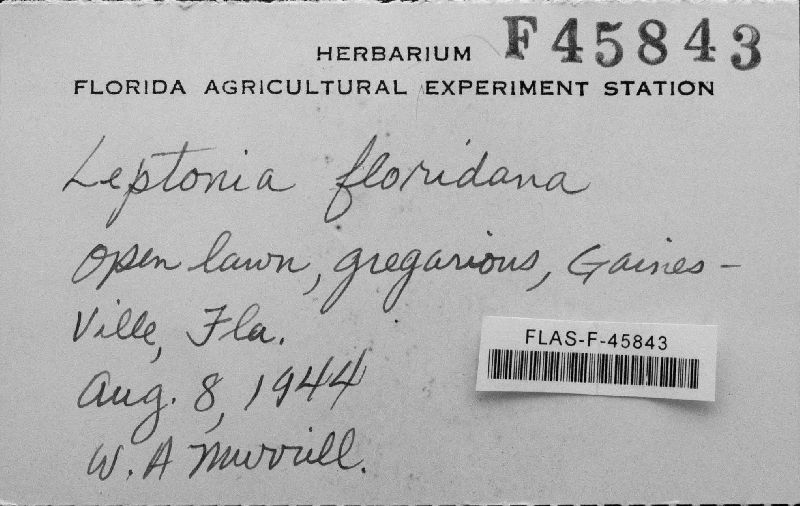 HERBARIUM F45843
FLORIDA AGRICULTURAL EXPERIMENT STATION
Leptonia floridana
Open lawn, gregarious, Gaines-
Ville, Fla.
FLAS-F-45843
Aug. 8, 1944
W. A Murrill.